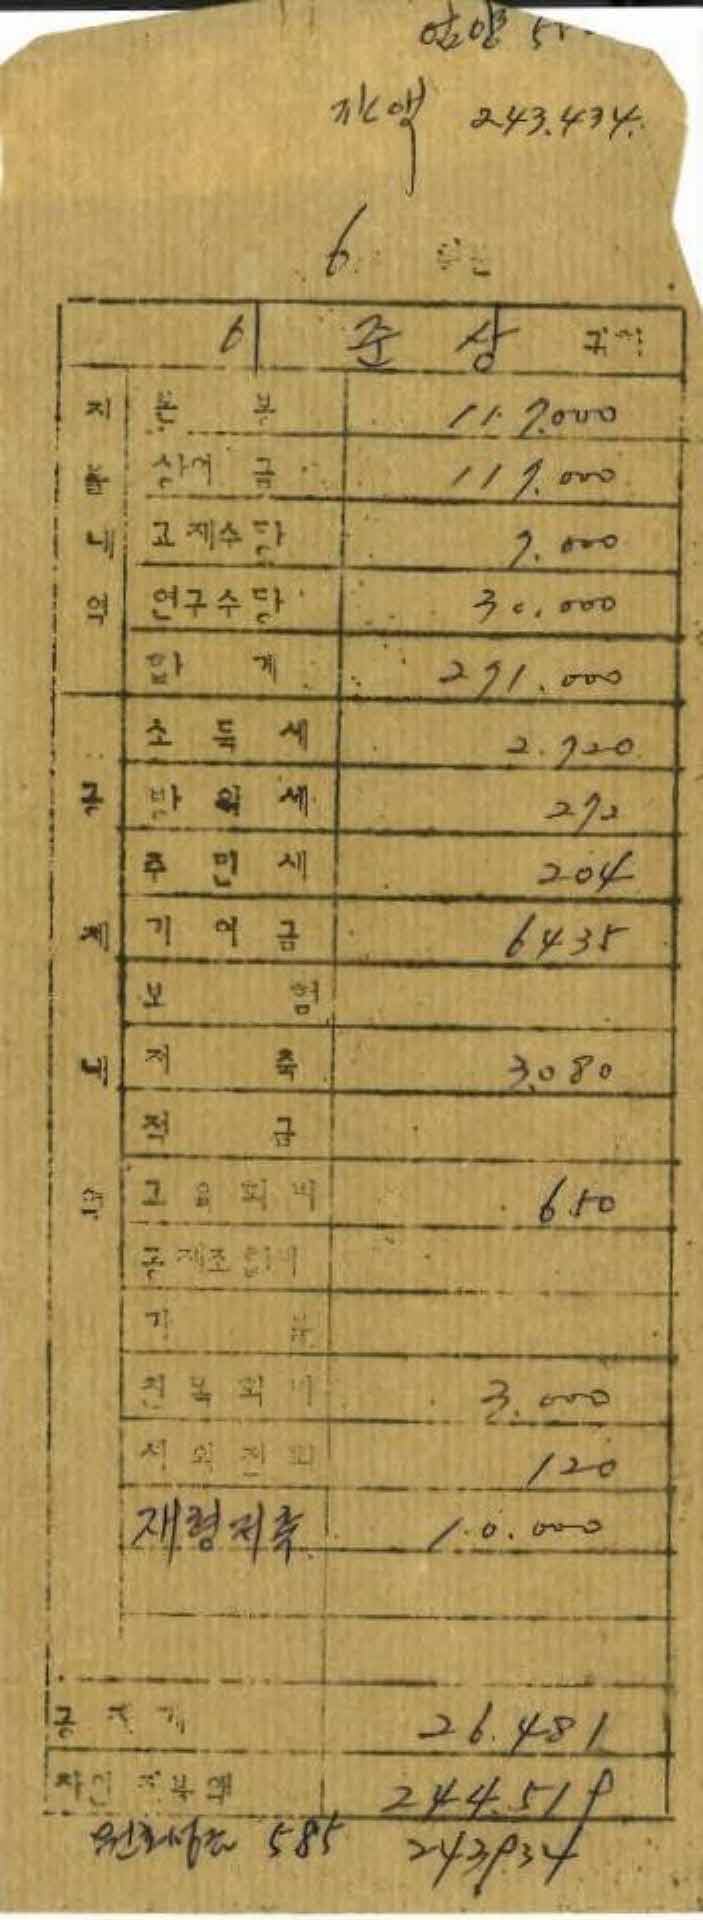 잔액 243.434.
6. 월분
이 준 상 귀하
지불내역
본 봉 117.000
상여금 117.000
교재수당 7.000
연구수당 30.000
합 계 271.000
공제내역
소 득 세 2.720
방 위 세 272
주 민 세 204
기 여 금 6435
보 험
저 축 3.080
적 금
교 육 회 비 650
공제조합비
기 부
친 목 회 비 3.000
120
재형저축 10.000
공 제 계 26.481
차인 지불액 244.519
585 243,934